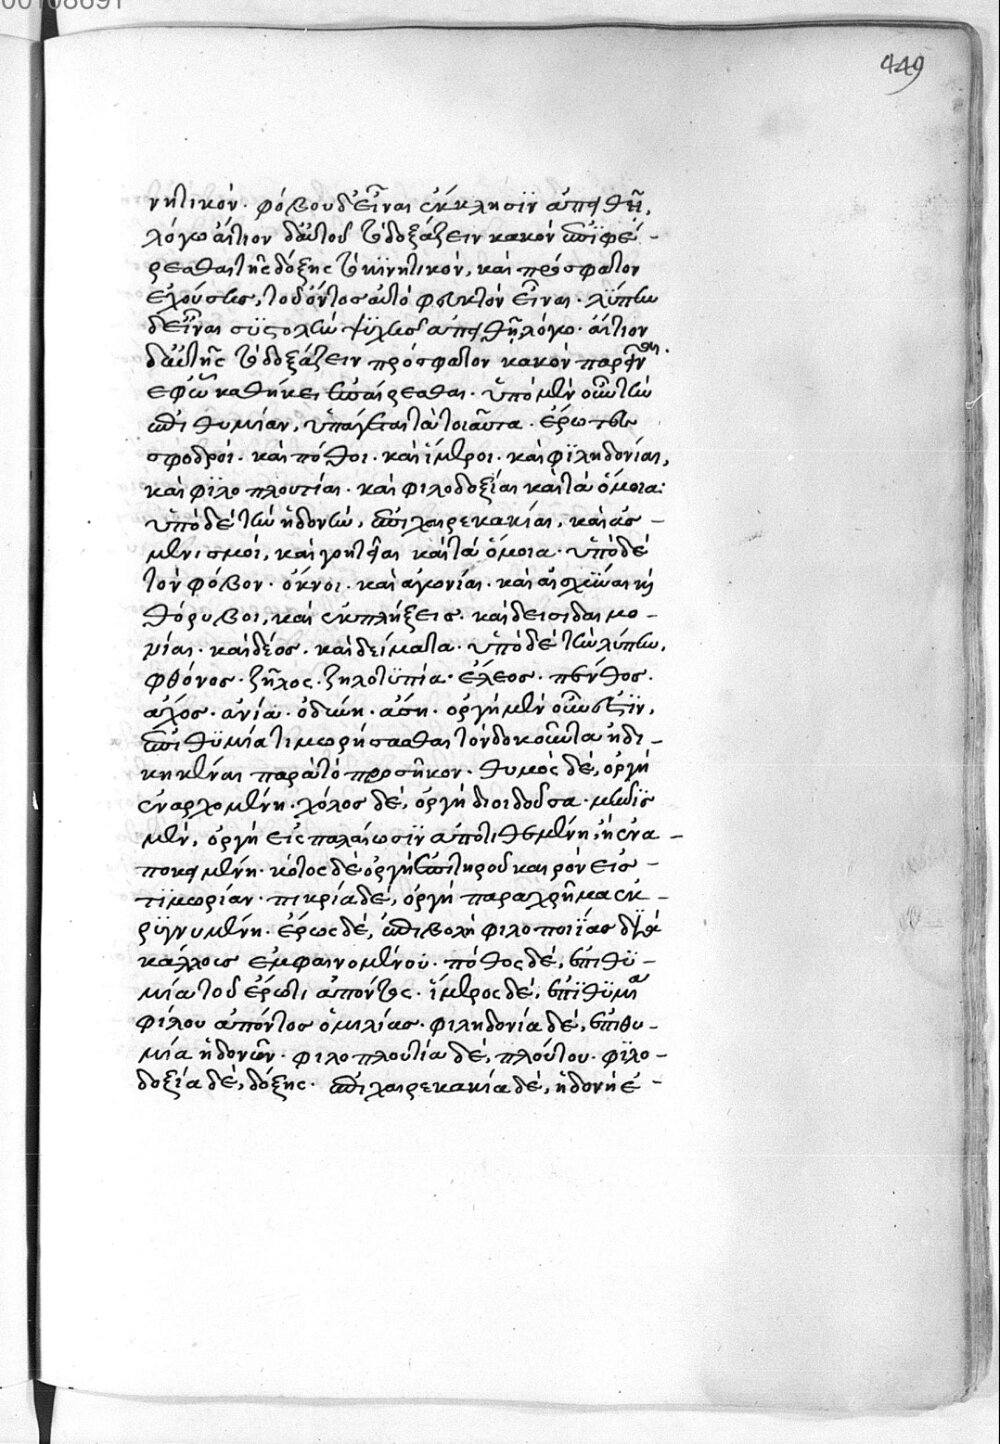 00108691
449
νητικόν. φόβου δ' εἶναι ἔκκλησϊν ἀπειθῆ,
λόγω αἴτιον δ' αὐτοῦ τὸ δοξάζειν κακὸν ἐπϊφέ-
ρεσθαι τῆς δόξης τὸ κϊνητικόν, καὶ πρόσφατον
ἐχούσης, τοῦ ὄντος αὐτὸ φευκτὸν εἶναι. λύπην
δ' εἶναι συστολὴν ψυχῆς ἀπειθῆ λόγω. αἴτιον
δ' αὐτῆς τὸ δοξάζειν πρόσφατον κακὸν παρεῖναι.
ἐφ' ὧ καθήκει συστέλλεσθαι. ὑπὸ μὲν οὖν τὴν
ἐπιθυμίαν, ὑπάγεται τὰ τοιαῦτα. ἔρωτες
σφοδροί. καὶ πόθοι. καὶ ἵμεροι. καὶ φϊληδονίαι,
καὶ φϊλοπλουτίαι. καὶ φιλοδοξίαι καὶ τὰ ὅμοια:
ὑπὸ δὲ τὴν ἡδονὴν, ἐπιχαιρεκακίαι, καὶ ἀσ-
μενισμοί, καὶ γοητεῖαι καὶ τὰ ὅμοια. ὑπὸ δὲ
τὸν φόβον. ὄκνοι. καὶ ἀγωνίαι. καὶ αἰσχύναι καὶ
θόρυβοι, καὶ ἐκπλήξεις. καὶ δεισιδαιμο-
νίαι. καὶ δέος. καὶ δείματα. ὑπὸ δὲ τὴν λύπην,
φθόνος. ζῆλος. ζηλοτϋπία. ἔλεος. πένθος.
ἄχος. ἀνία. ὀδύνη. ἄση. ὀργὴ μὲν οὖν ἐστϊν,
ἐπιθϋμία τιμωρήσασθαι τὸν δοκοῦντα ἠδι-
κηκέναι παρὰ τὸ προσῆκον. θυμὸς δέ, ὀργὴ
ἐναρχομένη. χόλος δέ, ὀργὴ διοιδοῦσα. μῆνϊς
μὲν, ὀργὴ εἰς παλαίωσϊν ἀποτιθεμένη, ἢ ἐνα-
ποκειμένη. κότος δὲ ὀργὴ ἐπιτηροῦσα καιρὸν εἰς-
τϊμωρίαν. πικρία δέ, ὀργὴ παραχρῆμα ἐκ-
ρϋγνυμένη. ἔρως δέ, ἐπιβολὴ φιλοποιΐας διὰ
κάλλος ἐμφαινομένου. πόθος δέ, ἐπιθϋ-
μία τοῦ ἔρωτι ἀπόντος. ἵμερος δέ, ἐπϊθϋμία
φίλου ἀπόντος ὁμιλίας. φιληδονία δέ, ἐπιθυ-
μία ἡδονῶν. φιλοπλουτία δέ, πλούτου. φϊλο-
δοξία δέ, δόξης. ἐπιχαιρεκακία δέ, ἡδονὴ ἐ-